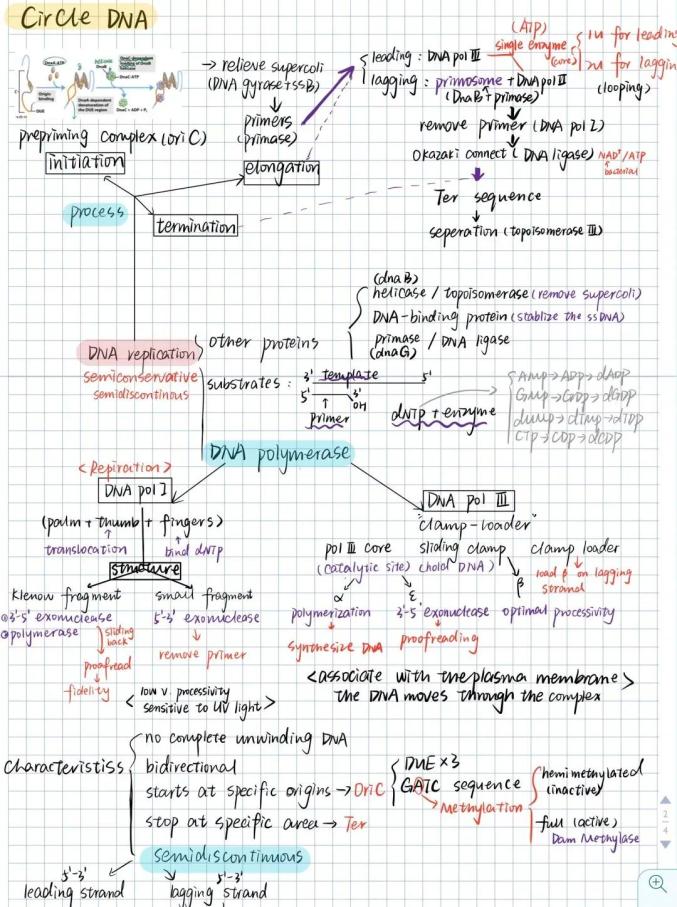 Circle DNA
→ relieve supercoli
(DNA gyrase+SSB)
primers
(primase)
prepriming complex (ori C)
initiation
elongation
termination
process
(ATP)
leading : DNA pol III
single enzyme
(core)
1u for leading
2u for laggin
lagging : primosome + DNA pol II
(looping)
(DnaB + primase)
remove primer (DNA pol I)
Okazaki connect (DNA ligase)
NAD⁺/ATP
bacterial
Ter sequence
seperation (topoisomerase III)
DNA replication
semiconservative
semidiscontinous
other proteins
(dnaB)
helicase / topoisomerase (remove supercoli)
DNA-binding protein (stablize the ssDNA)
primase / DNA ligase
(dnaG)
substrates :
3' template 5'
5' 3'
OH
primer
dNTP + enzyme
DNA polymerase
<Repiration>
DNA pol I
(palm + thumb + fingers)
translocation
bind dNTP
structure
Klenow fragment
small fragment
①3'-5' exonuclease
5'-3' exonuclease
②polymerase
sliding
back
remove primer
proofread
fidelity
< low v. processivity
sensitive to UV light >
DNA pol III
"clamp-loader"
pol III core
sliding clamp
clamp loader
(catalytic site)
(hold DNA)
load β on lagging
strand
α
ε
β
polymerization
3'-5' exonuclease
optimal processivity
synthesize DNA
proofreading
<associate with the plasma membrane>
the DNA moves through the complex
Characteristiss
no complete unwinding DNA
bidirectional
starts at specific origins → OriC
stop at specific area → Ter
DUE ×3
GATC sequence
Methylation
hemimethylated
(inactive)
full (active)
Dam Methylase
semidiscontinuous
5'-3'
leading strand
5'-3'
lagging strand
2
4